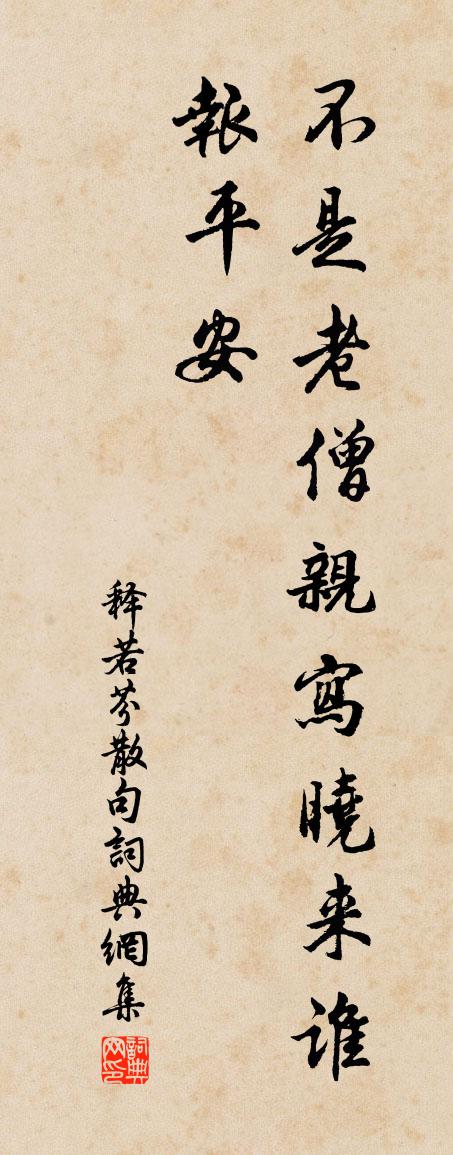 不是老僧親寫曉来誰
報平安
释若芬散句詞典網集
詞典网印